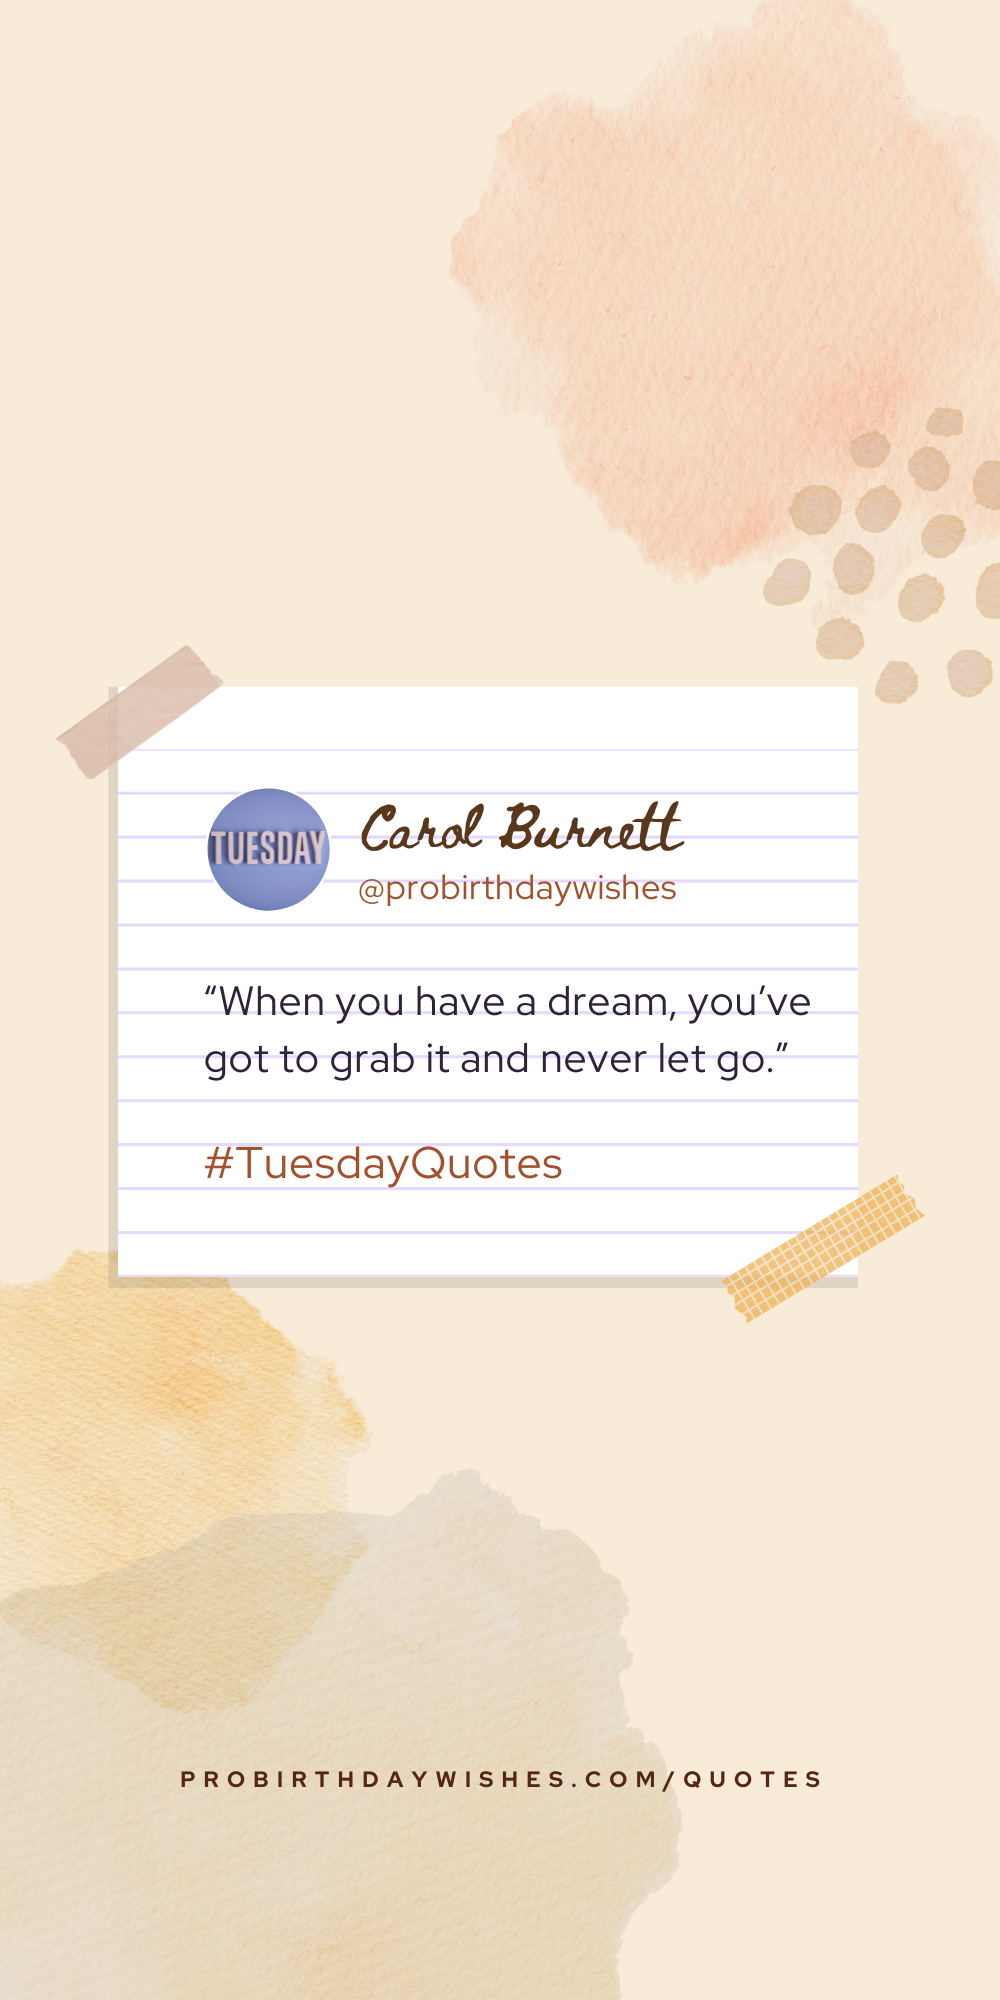 TUESDAY
Carol Burnett
@probirthdaywishes
“When you have a dream, you’ve
got to grab it and never let go.”
#TuesdayQuotes
PROBIRTHDAYWISHES.COM/QUOTES